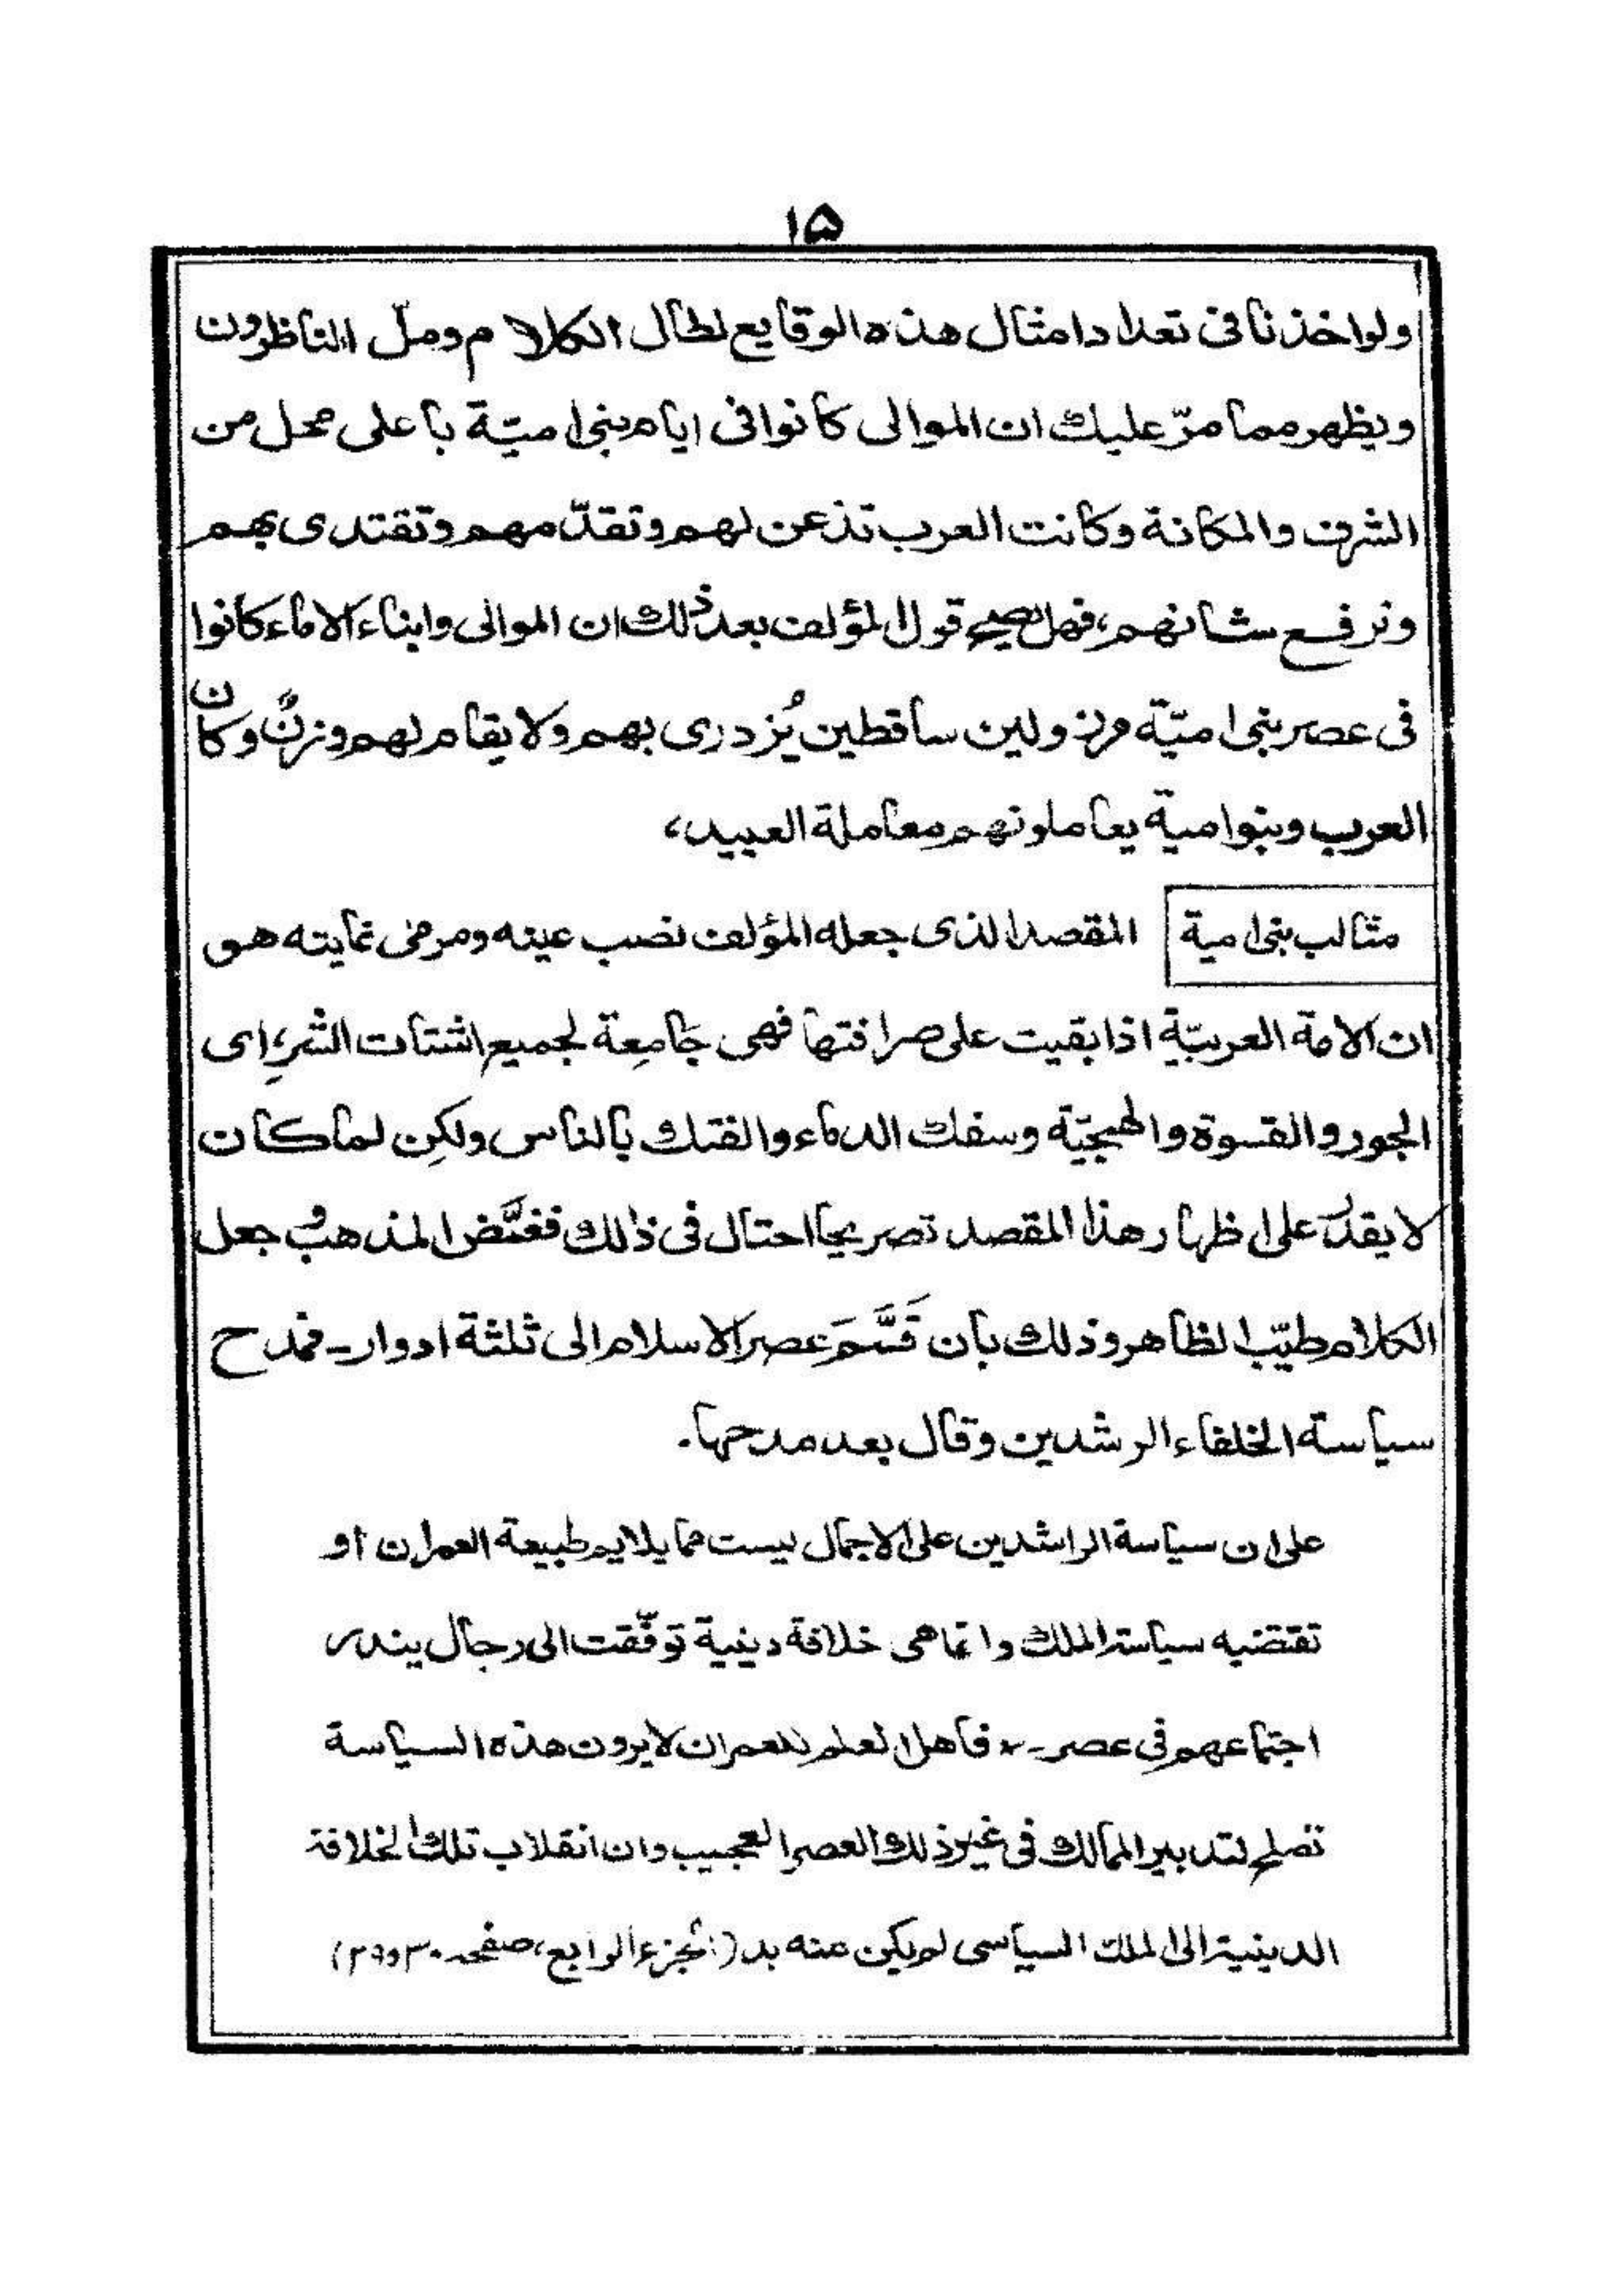 ۱۵
ولواخذنا فى تعداد امثال هذه الوقايع لطال الكلام وملّ الناظرون
ويظهر مما مرّ عليك ان الموالى كانوا فى ايام بنى اميّة باعلى محل من
الشرف والمكانة وكانت العرب تذعن لهم وتقدّمهم وتقتدى بهم
وترفع شانهم، فهل يصح قول المؤلف بعد ذلك ان الموالى وابناء الاماء كانوا
فى عصر بنى اميّة مرذولين ساقطين يُزدرى بهم ولا يقام لهم وزنٌ وكان
العرب وبنوامية يعاملونهم معاملة العبيد،
مثالب بنى امية المقصد الذى جعله المؤلف نصب عينه ومرمى غايته هو
ان الامة العربيّة اذا بقيت على صرافتها فهى جامِعة لجميع اشتات الشرِ، اى
الجور والقسوة والهمجيّة وسفك الدماء والفتك بالناس ولكِن لما كان
لا يقدر على اظهار هذا المقصد تصريحا احتال فى ذلك فغمَّض المذهب وجعل
الكلام طيّب الظاهر وذلك بان قَسَّمَ عصر الاسلام الى ثلثة ادوار۔ فمدح
سياسة الخلفاء الرشدين وقال بعد مدحها۔
على ان سياسة الراشدين على الاجمال ليست مما يلايم طبيعة العمران او
تقتضيه سياسة الملك وانما هى خلافة دينية توفّقت الى رجال يندر
اجتماعهم فى عصر۔ فاهل العلم بالعمران لا يرون هذه السياسة
تصلح لتدبير الممالك فى غير ذلك العصر العجيب وان انقلاب تلك الخلافة
الدينية الى الملك السياسى لم يكن عنه بد (الجزء الرابع، صفحه ۳۰ و۲۹)